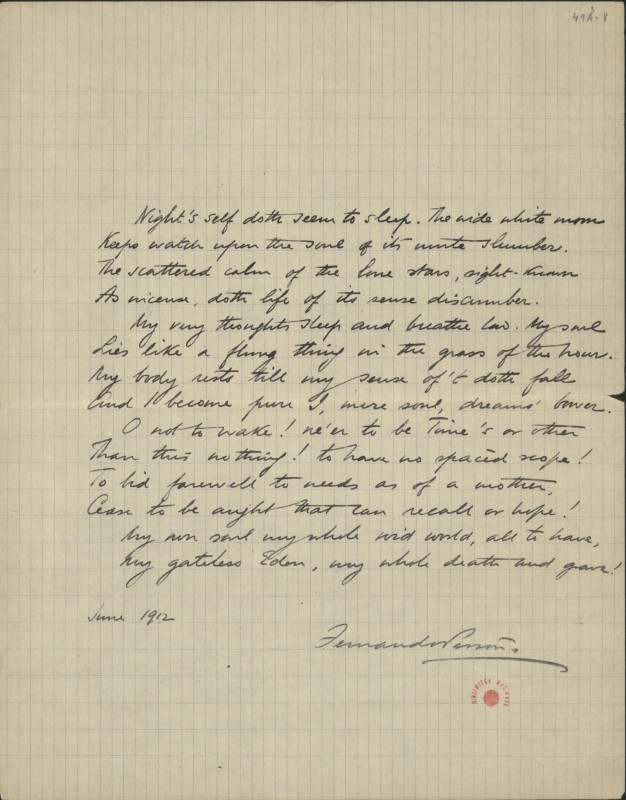 49A-8
Night's self doth seem to sleep. The wide white moon
Keeps watch upon the soul of its mute slumber.
The scattered calm of the lone stars, sight-known
As incense, doth life of its sense discumber.
My very thoughts sleep and breathe low. My soul
Lies like a flung thing in the grass of the hour.
My body rests till my sense of't doth fall
And I become pure I, mere soul, dreams' bower.
O not to wake! ne'er to be Time's or other
Than this nothing! to have no spaced scope!
To bid farewell to needs as of a mother,
Cease to be aught that can recall or hope!
My own soul my whole void world, all to have,
My gateless Eden, my whole death and grave!
June 1912
Fernando Pessoa.
BIBLIOTECA NACIONAL